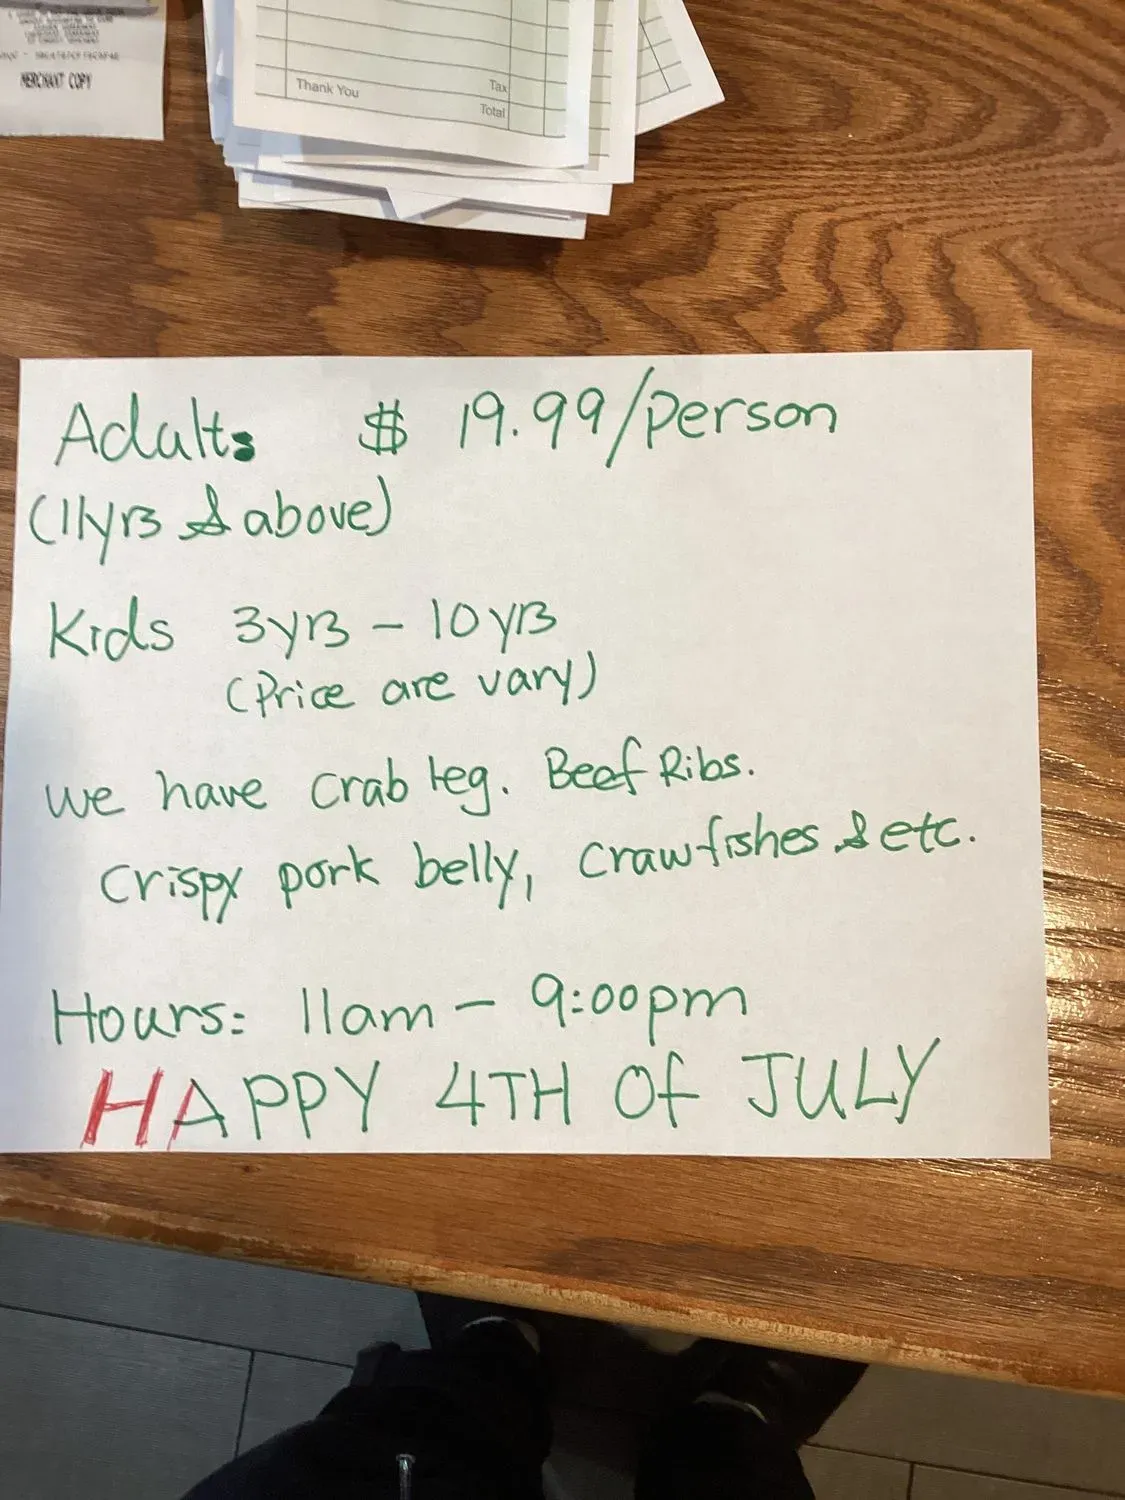 MERCHANT COPY
Thank You
Tax
Total
Adults $ 19.99/person
(11yrs & above)
Kids 3yrs - 10yrs
(Price are vary)
we have crab leg. Beef Ribs.
crispy pork belly, crawfishes & etc.
Hours: 11am - 9:00pm
HAPPY 4TH OF JULY